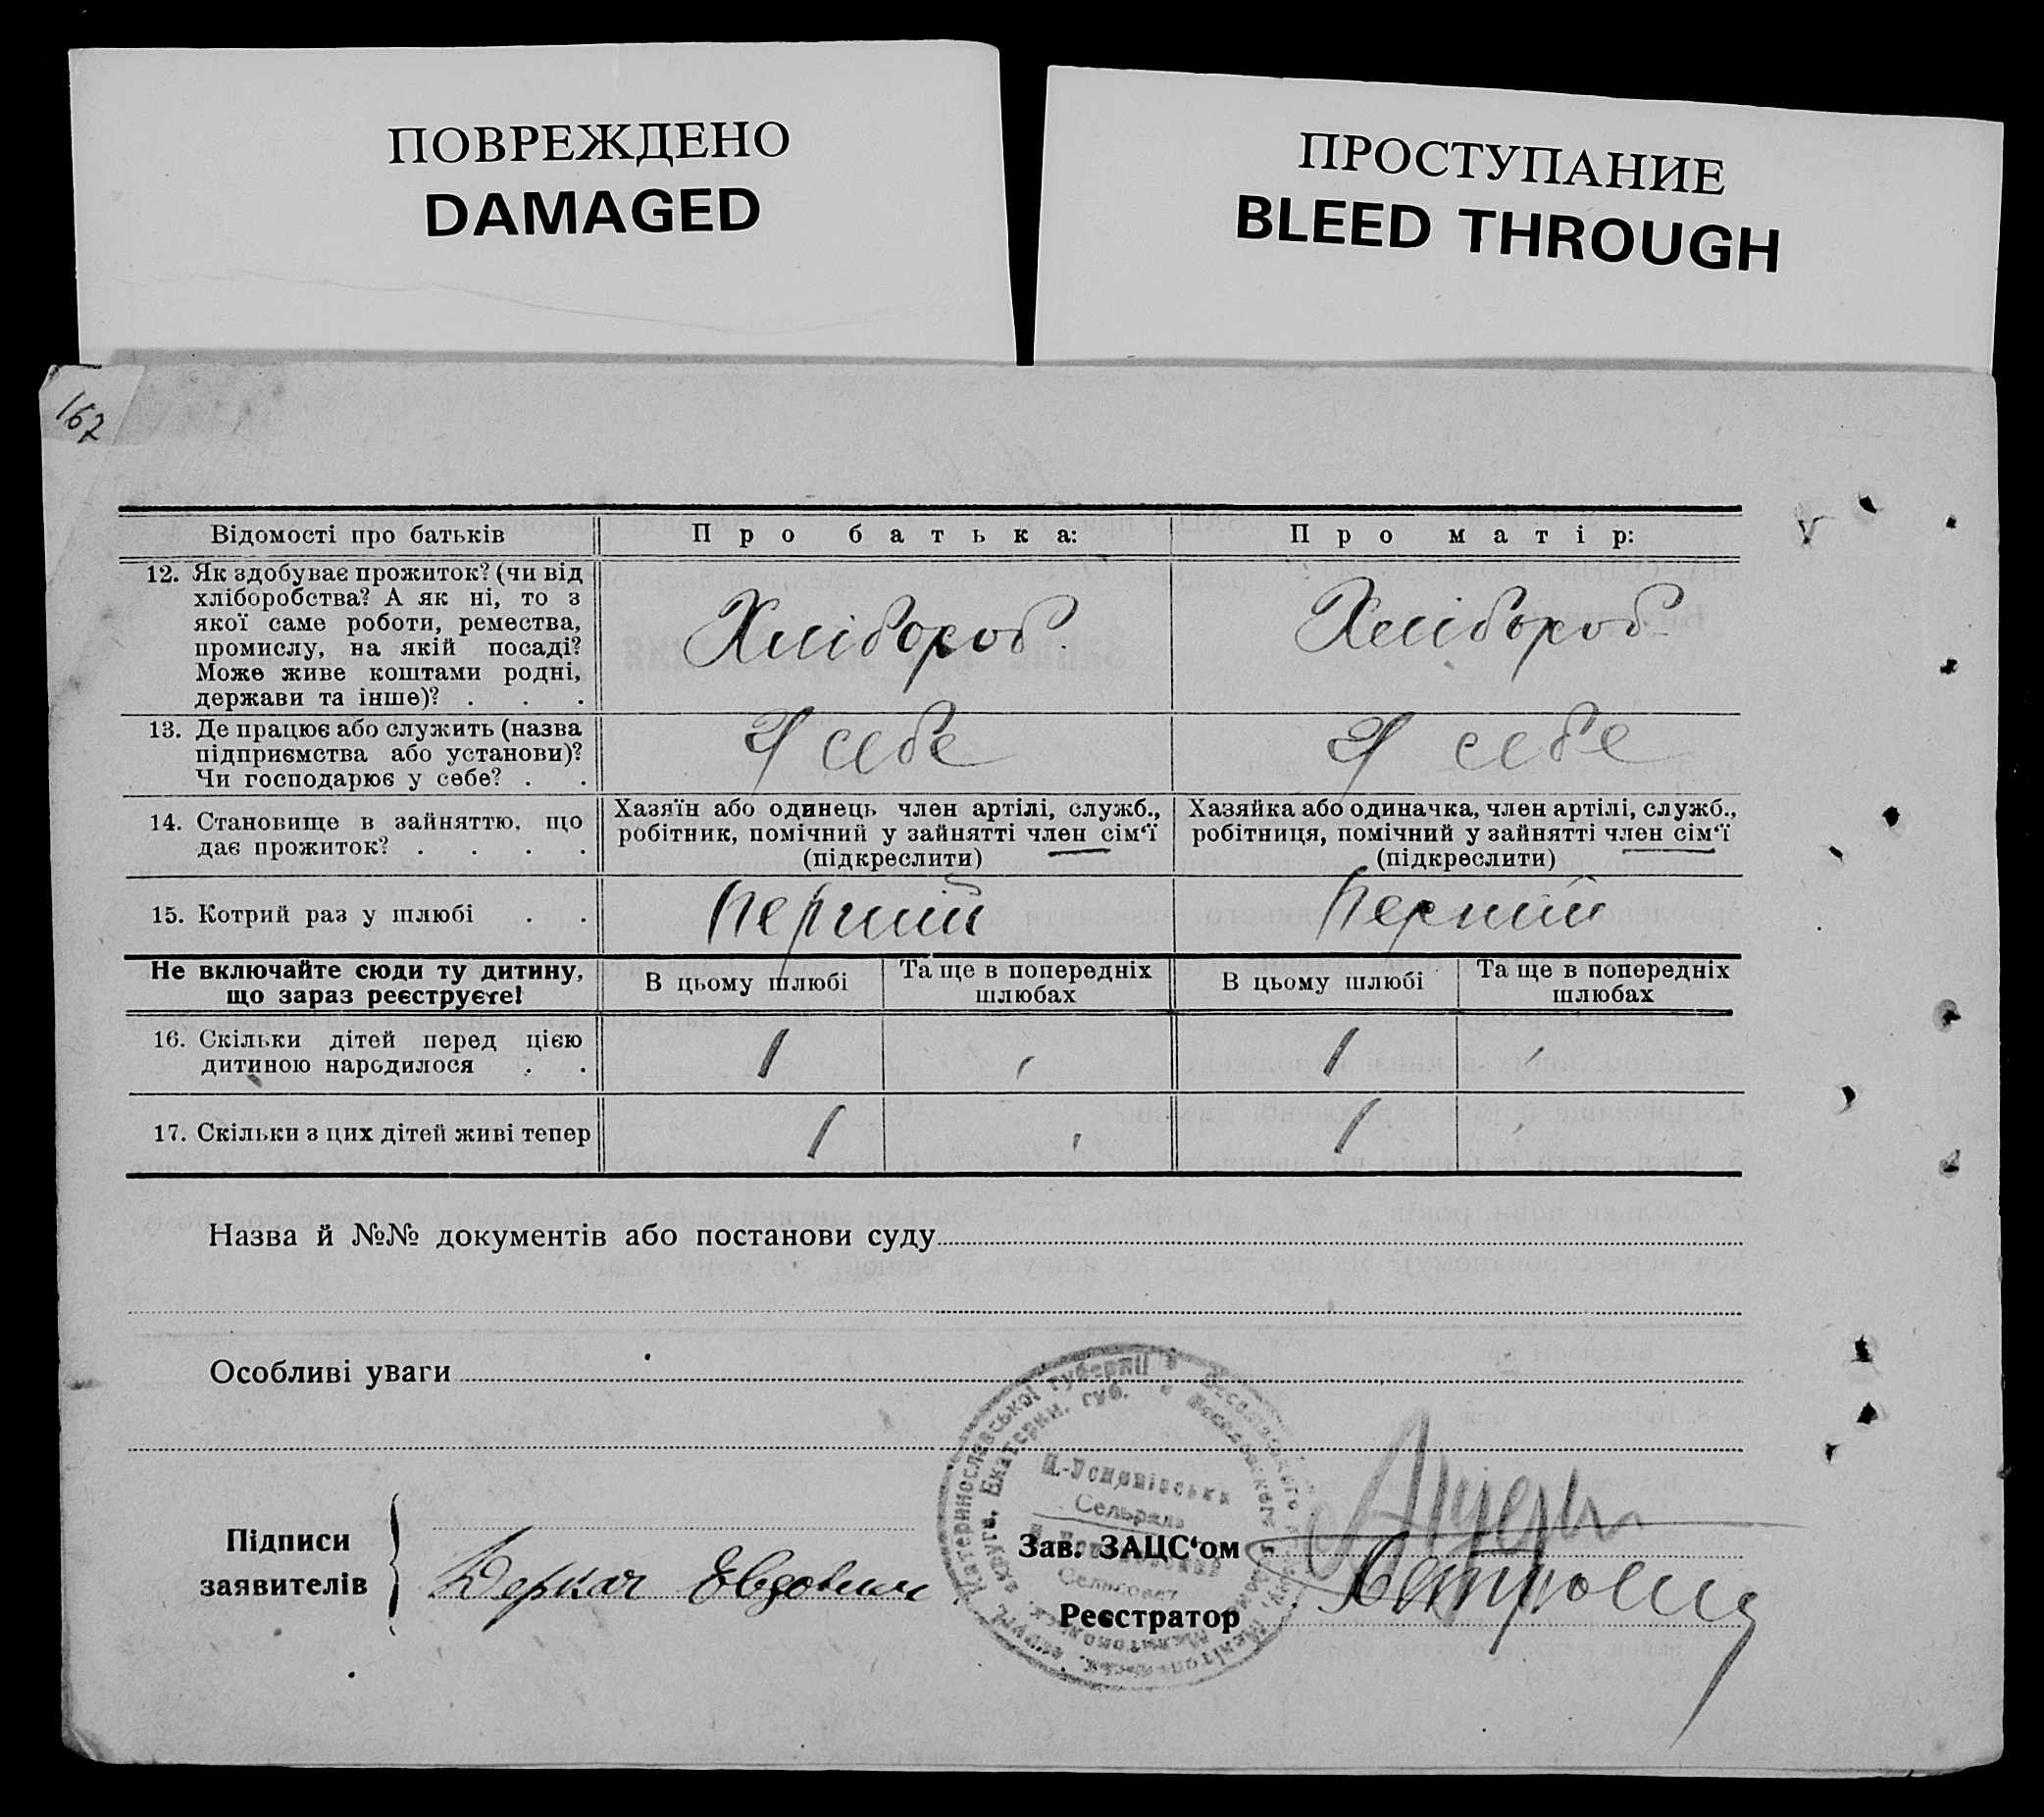 ПОВРЕЖДЕНО
DAMAGED
ПРОСТУПАНИЕ
BLEED THROUGH
167
Відомості про батьків
Про батька:
Про матір:
12. Як здобуває прожиток? (чи від
хліборобства? А як ні, то з
якої саме роботи, ремества,
промислу, на якій посаді?
Може живе коштами родні,
держави та інше)? . . .
Хлібороб
Хлібороб
13. Де працює або служить (назва
підприємства або установи)?
Чи господарює у себе? . .
У себе
У себе
14. Становище в зайняттю, що
дає прожиток? . . . .
Хазяїн або одинець член артілі, служб.,
робітник, помічний у зайнятті член сім‘ї
(підкреслити)
Хазяйка або одиначка, член артілі, служб.,
робітниця, помічний у зайнятті член сім‘ї
(підкреслити)
15. Котрий раз у шлюбі . .
Перший
Перший
Не включайте сюди ту дитину,
що зараз реєструєте!
В цьому шлюбі
Та ще в попередніх
шлюбах
В цьому шлюбі
Та ще в попередніх
шлюбах
16. Скільки дітей перед цією
дитиною народилося . .
1
1
17. Скільки з цих дітей живі тепер
1
1
Назва й №№ документів або постанови суду
Особливі уваги
Підписи
заявителів
Деркач
Катеринославської губернії
Екатерин. губ.
Сельрада
Сельсовет
Зав. ЗАЦС‘ом
Реєстратор